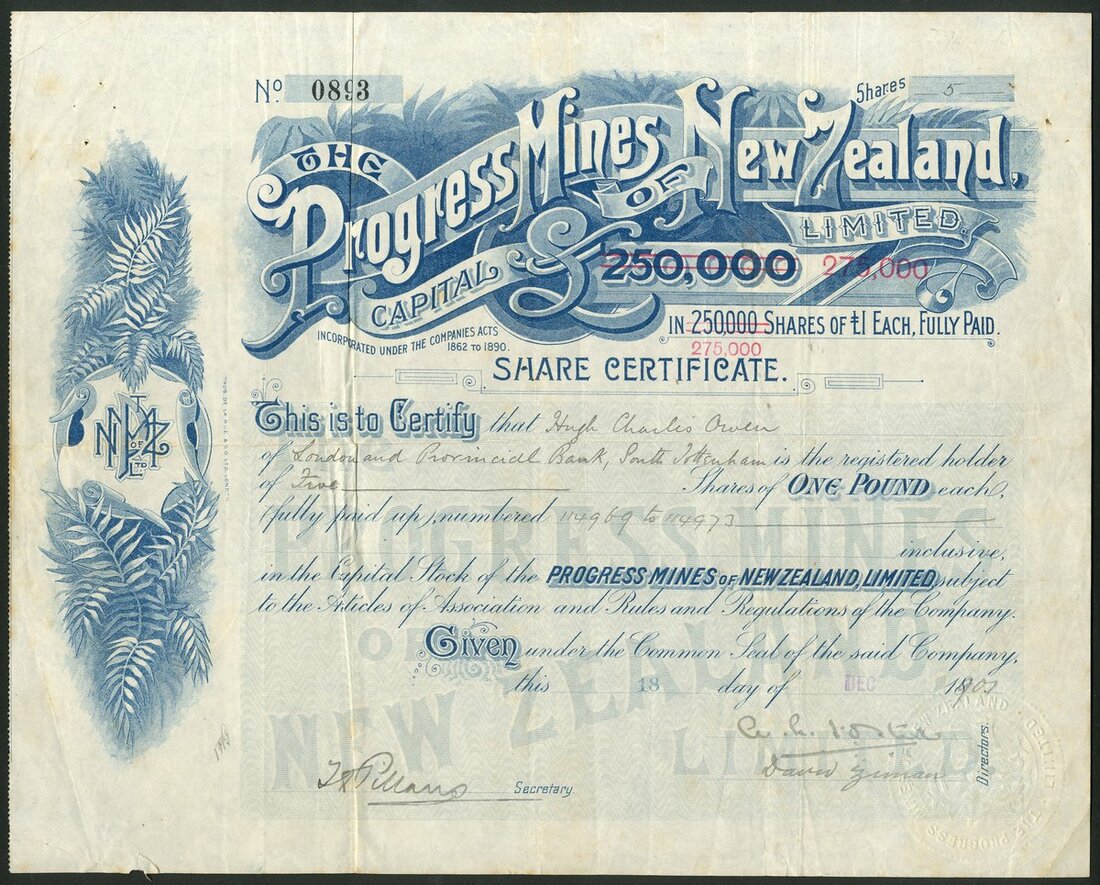 No. 0893
Shares 5
THE
Progress Mines OF New Zealand,
LIMITED.
CAPITAL £ 250,000 275,000
INCORPORATED UNDER THE COMPANIES ACTS
1862 TO 1890.
IN 250000 SHARES OF £1 EACH, FULLY PAID.
275,000
SHARE CERTIFICATE.
This is to Certify that Hugh Charles Owen
of London and Provincial Bank, South Tottenham is the registered holder
of Five Shares of ONE POUND each,
(fully paid up), numbered 114969 to 114973
inclusive,
in the Capital Stock of the PROGRESS MINES OF NEW ZEALAND, LIMITED, subject
to the Articles of Association and Rules and Regulations of the Company.
Given under the Common Seal of the said Company,
this 18 day of DEC 1901
David Ziman
Directors.
Secretary.
PROGRESS MINES
OF
NEW ZEALAND
LIMITED
THE PROGRESS MINES OF NEW ZEALAND LIMITED